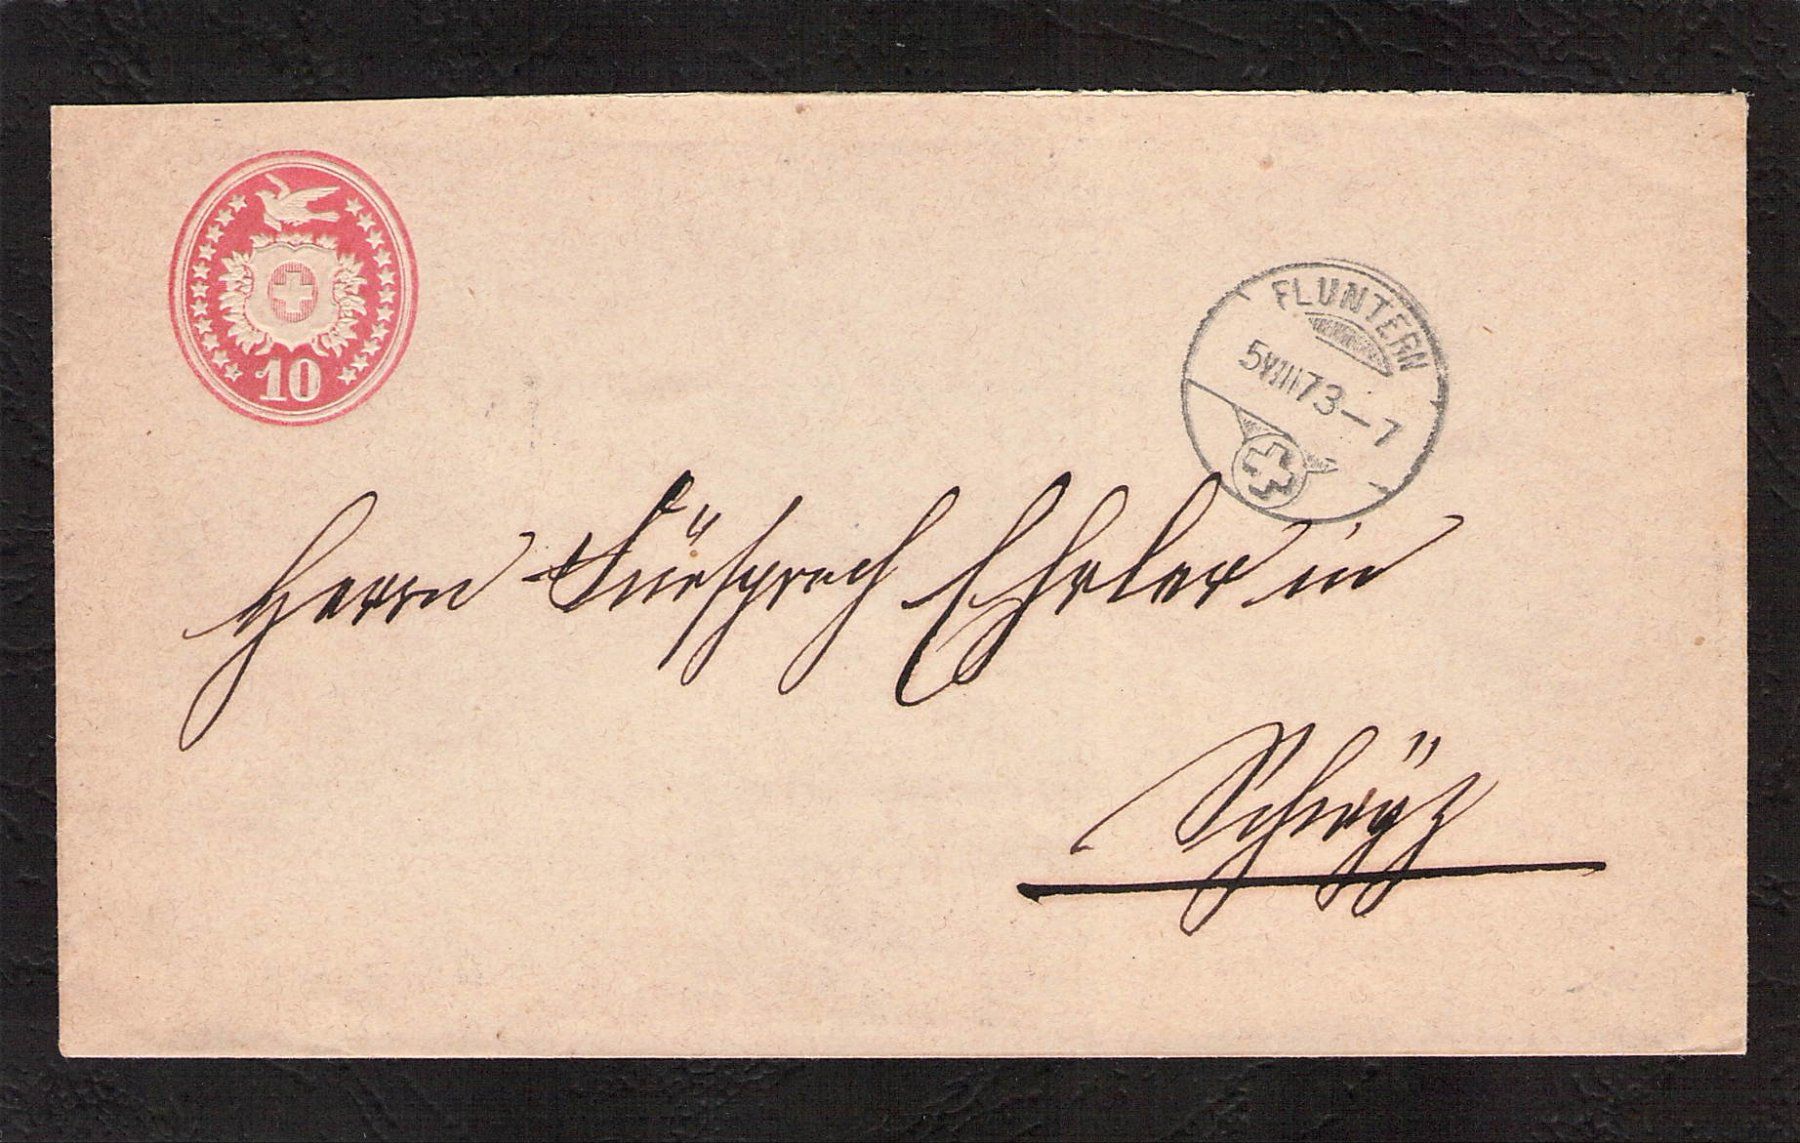 10
FLUNTERN
5 VIII 73 – 7
Herrn Fürsprech Ehrler in
Schwÿz